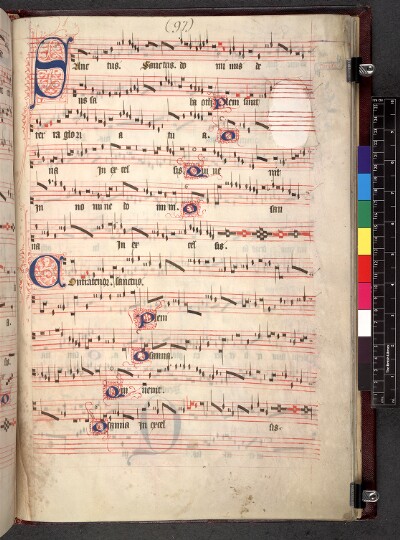 (97)
Sanc tus. Sanctus. do mi nus de
us sa ba oth Pleni sunt
celi et terra gloria tu a. O
na In ex cel sis Qui ve nit
In no mi ne do mi ni. O san
na In ex cel sis.
Contratenor. Sanctus.
Pleni
Osanna.
Qui venit.
Osanna In excel sis.